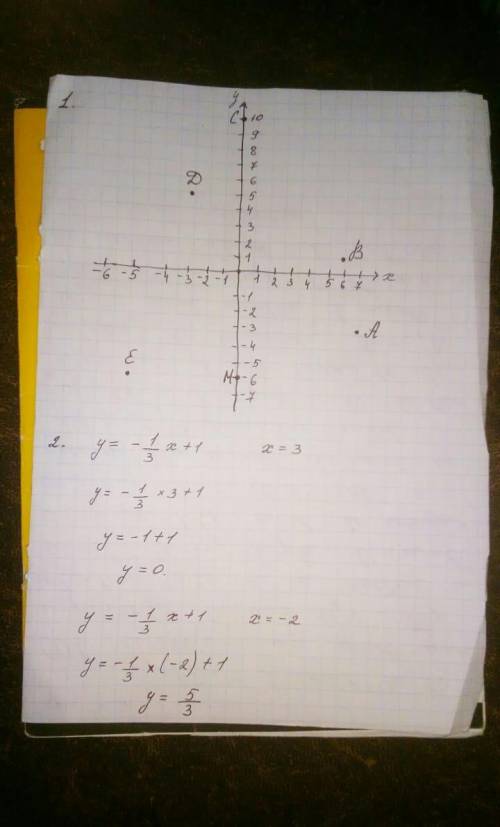 1.
y
C 10
9
8
7
D 6
5
4
3
2
B
1
-6 -5 -4 -3 -2 -1 1 2 3 4 5 6 7 x
-1
-2
-3 A
-4
E -5
M -6
-7
2. y = -1/3 x + 1 x = 3
y = -1/3 × 3 + 1
y = -1 + 1
y = 0.
y = -1/3 x + 1 x = -2
y = -1/3 × (-2) + 1
y = 5/3